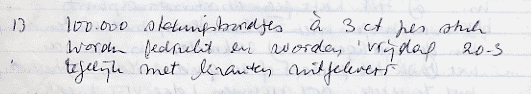 1) 100.000 stakingsbandjes à 3 ct per stuk
worden gedrukt en worden vrijdag 20-3
tegelijk met kranten uitgeleverd